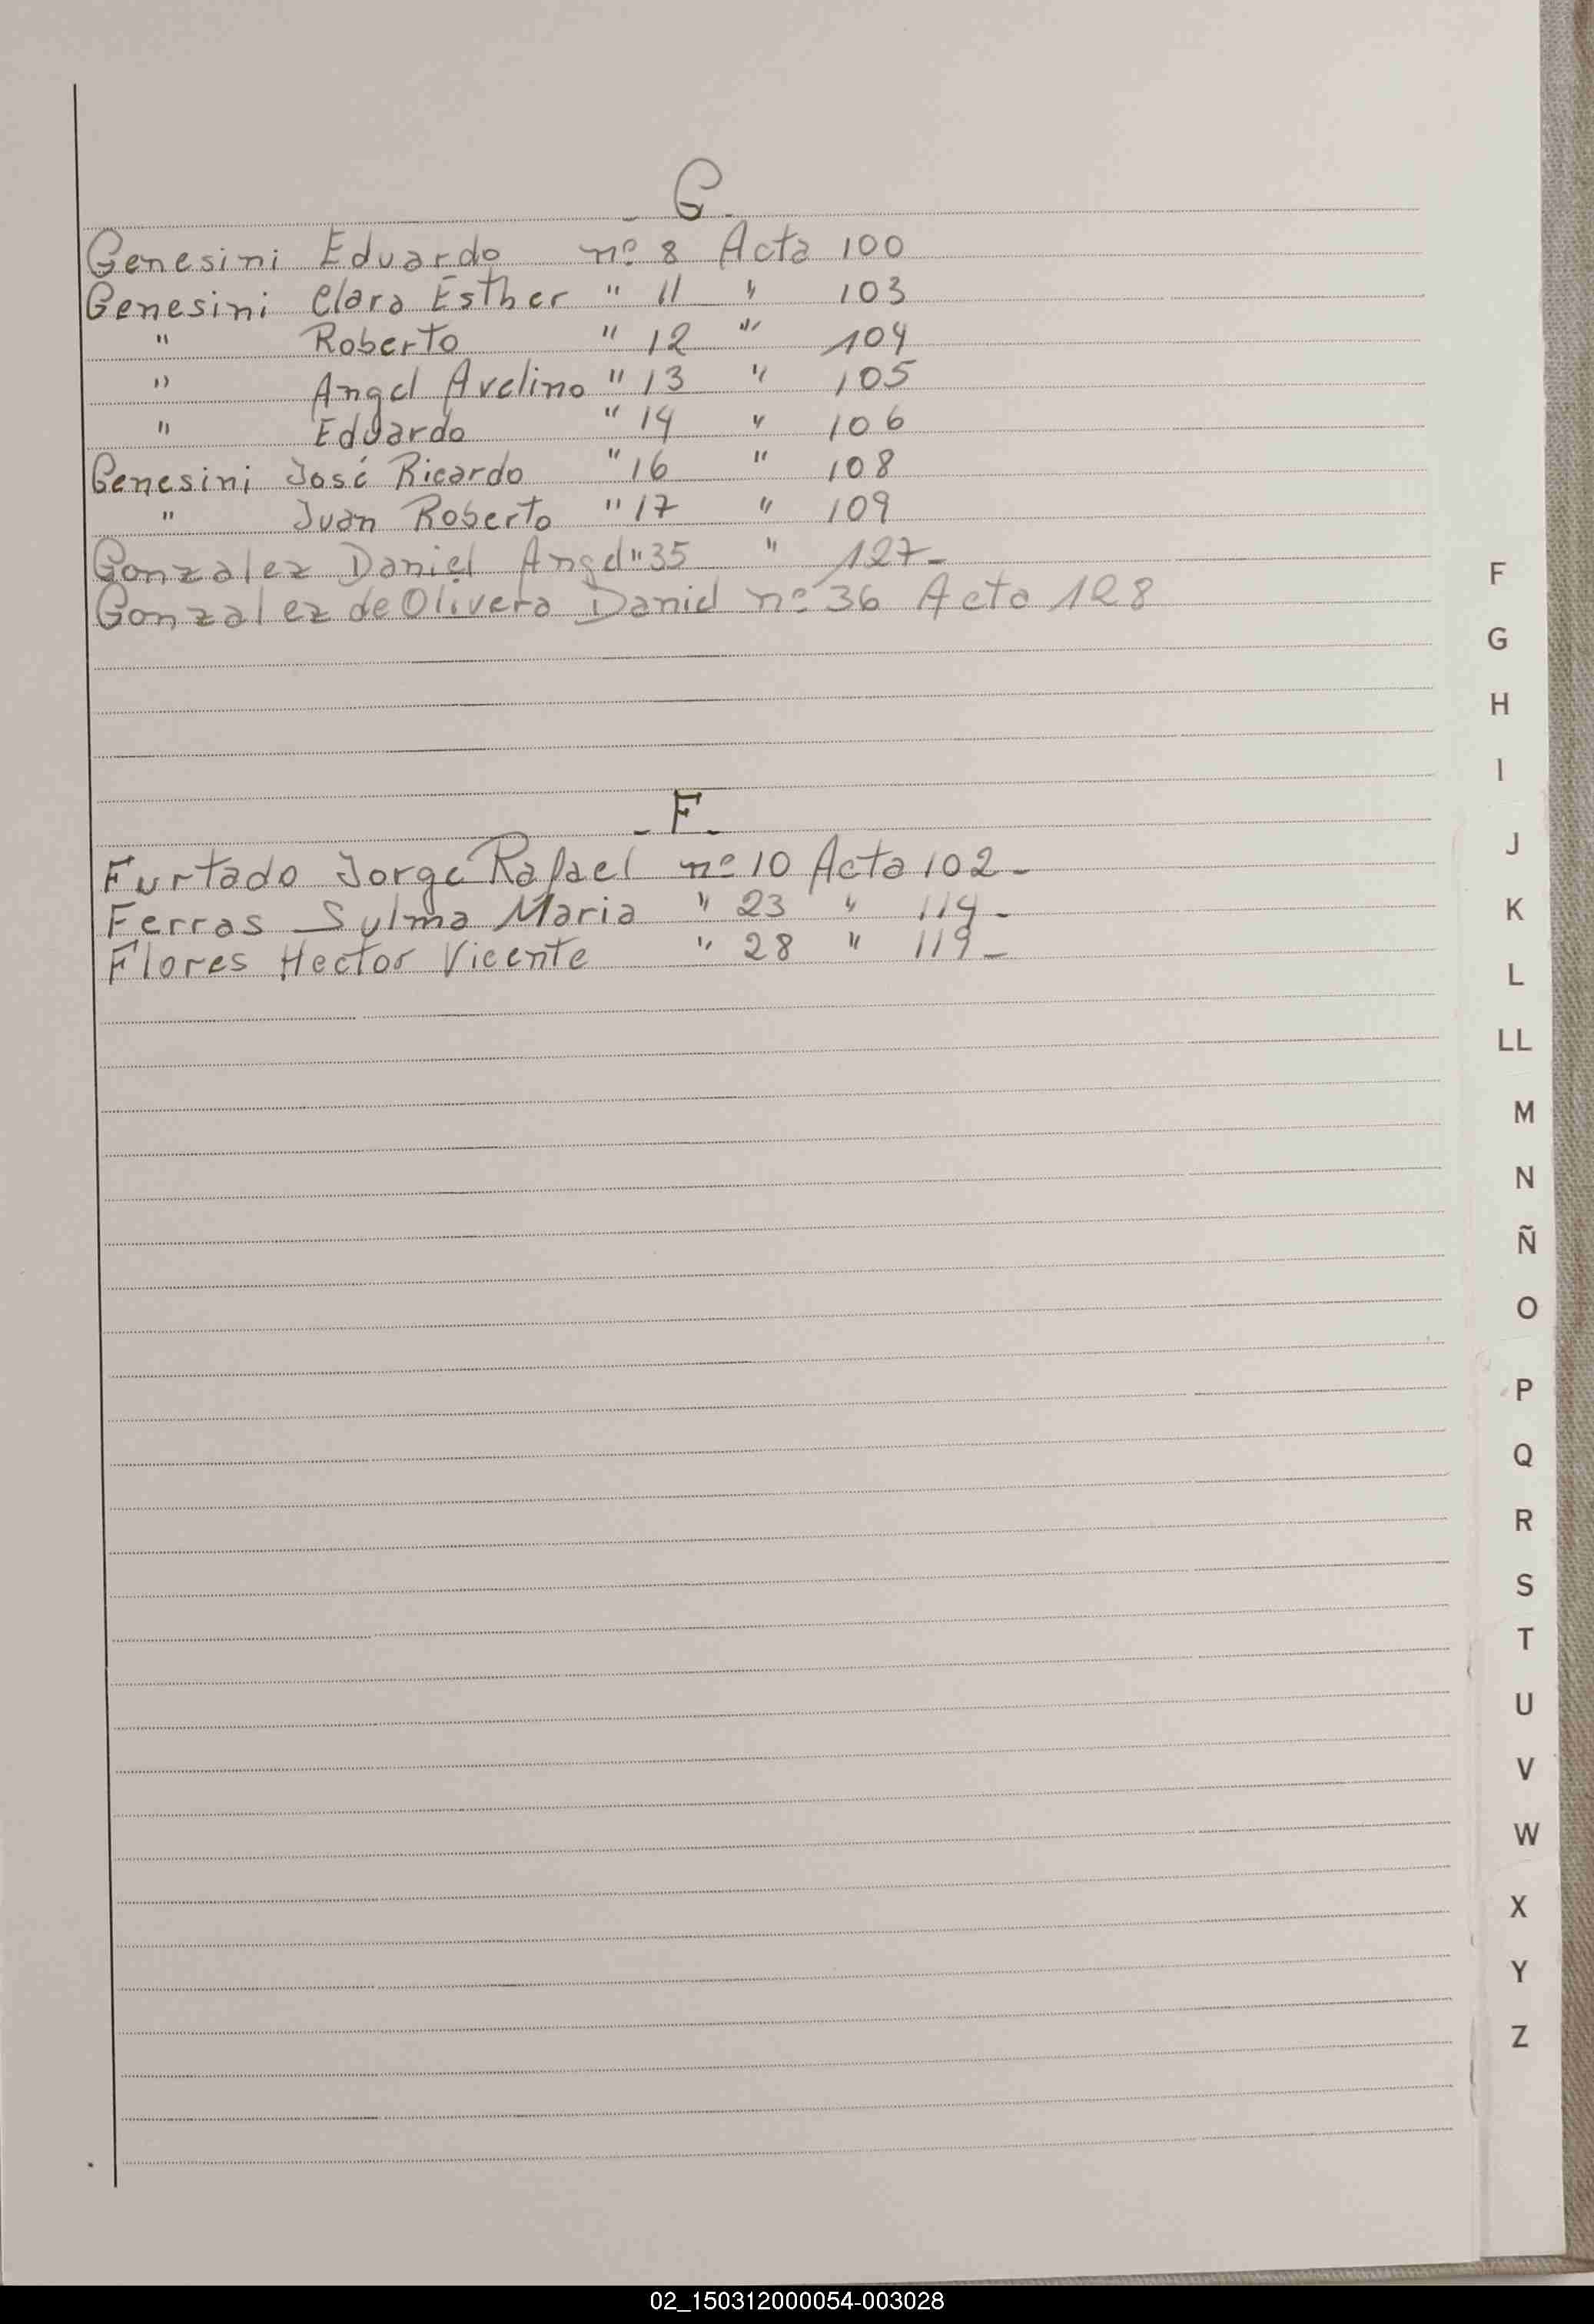 - G -
Genesini Eduardo nº 8 Acta 100
Genesini Clara Esther " 11 " 103
" Roberto " 12 " 104
" Angel Avelino " 13 " 105
" Eduardo " 14 " 106
Genesini José Ricardo " 16 " 108
" Juan Roberto " 17 " 109
Gonzalez Daniel Angel " 35 " 127-
Gonzalez de Olivera Daniel nº 36 Acta 128
- F -
Furtado Jorge Rafael nº 10 Acta 102-
Ferras Sylma Maria " 23 " 114-
Flores Hector Vicente " 28 " 119-
F
G
H
I
J
K
L
LL
M
N
Ñ
O
P
Q
R
S
T
U
V
W
X
Y
Z
02_150312000054-003028